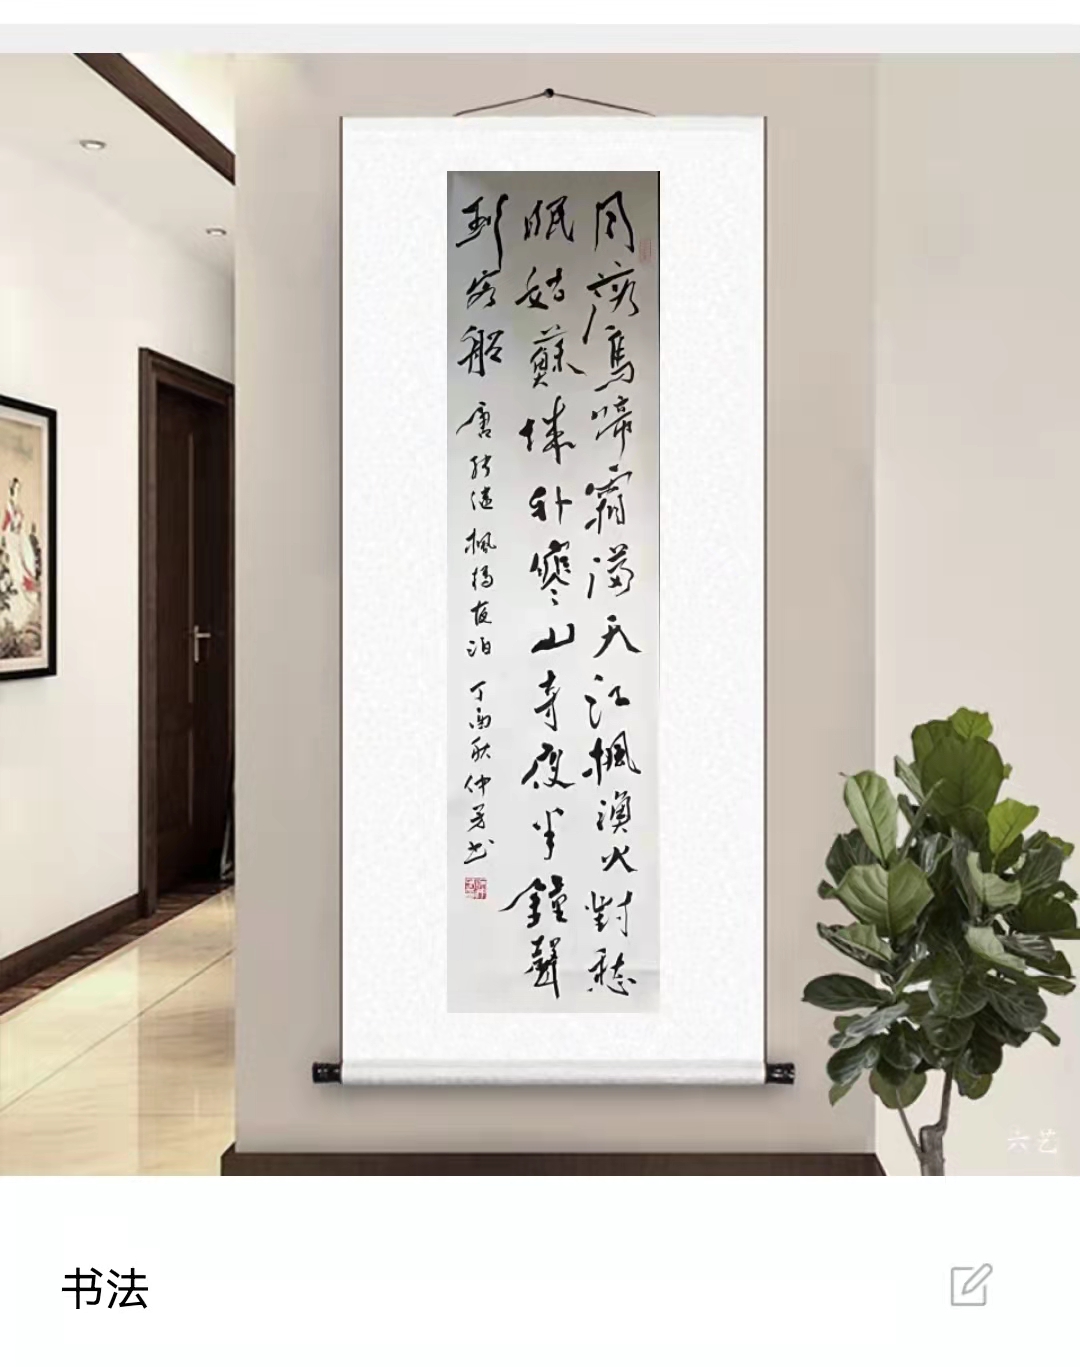 月落烏啼霜滿天江楓漁火對愁
眠姑蘇城外寒山寺夜半鐘聲
到客船
唐張繼楓橋夜泊 丁酉秋仲芳书
六艺
书法